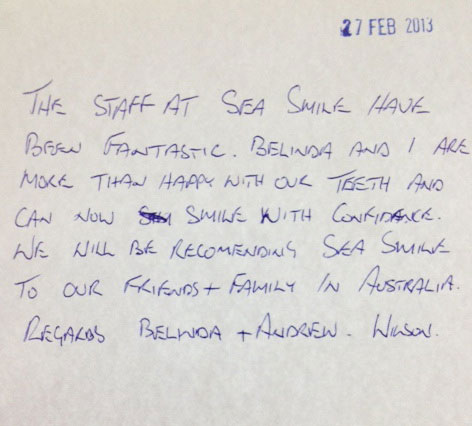 27 FEB 2013
THE STAFF AT SEA SMILE HAVE
BEEN FANTASTIC. BELINDA AND I ARE
MORE THAN HAPPY WITH OUR TEETH AND
CAN NOW SMILE WITH CONFIDANCE.
WE WILL BE RECOMENDING SEA SMILE
TO OUR FRIENDS + FAMILY IN AUSTRALIA.
REGARDS BELINDA + ANDREW. WILSON.